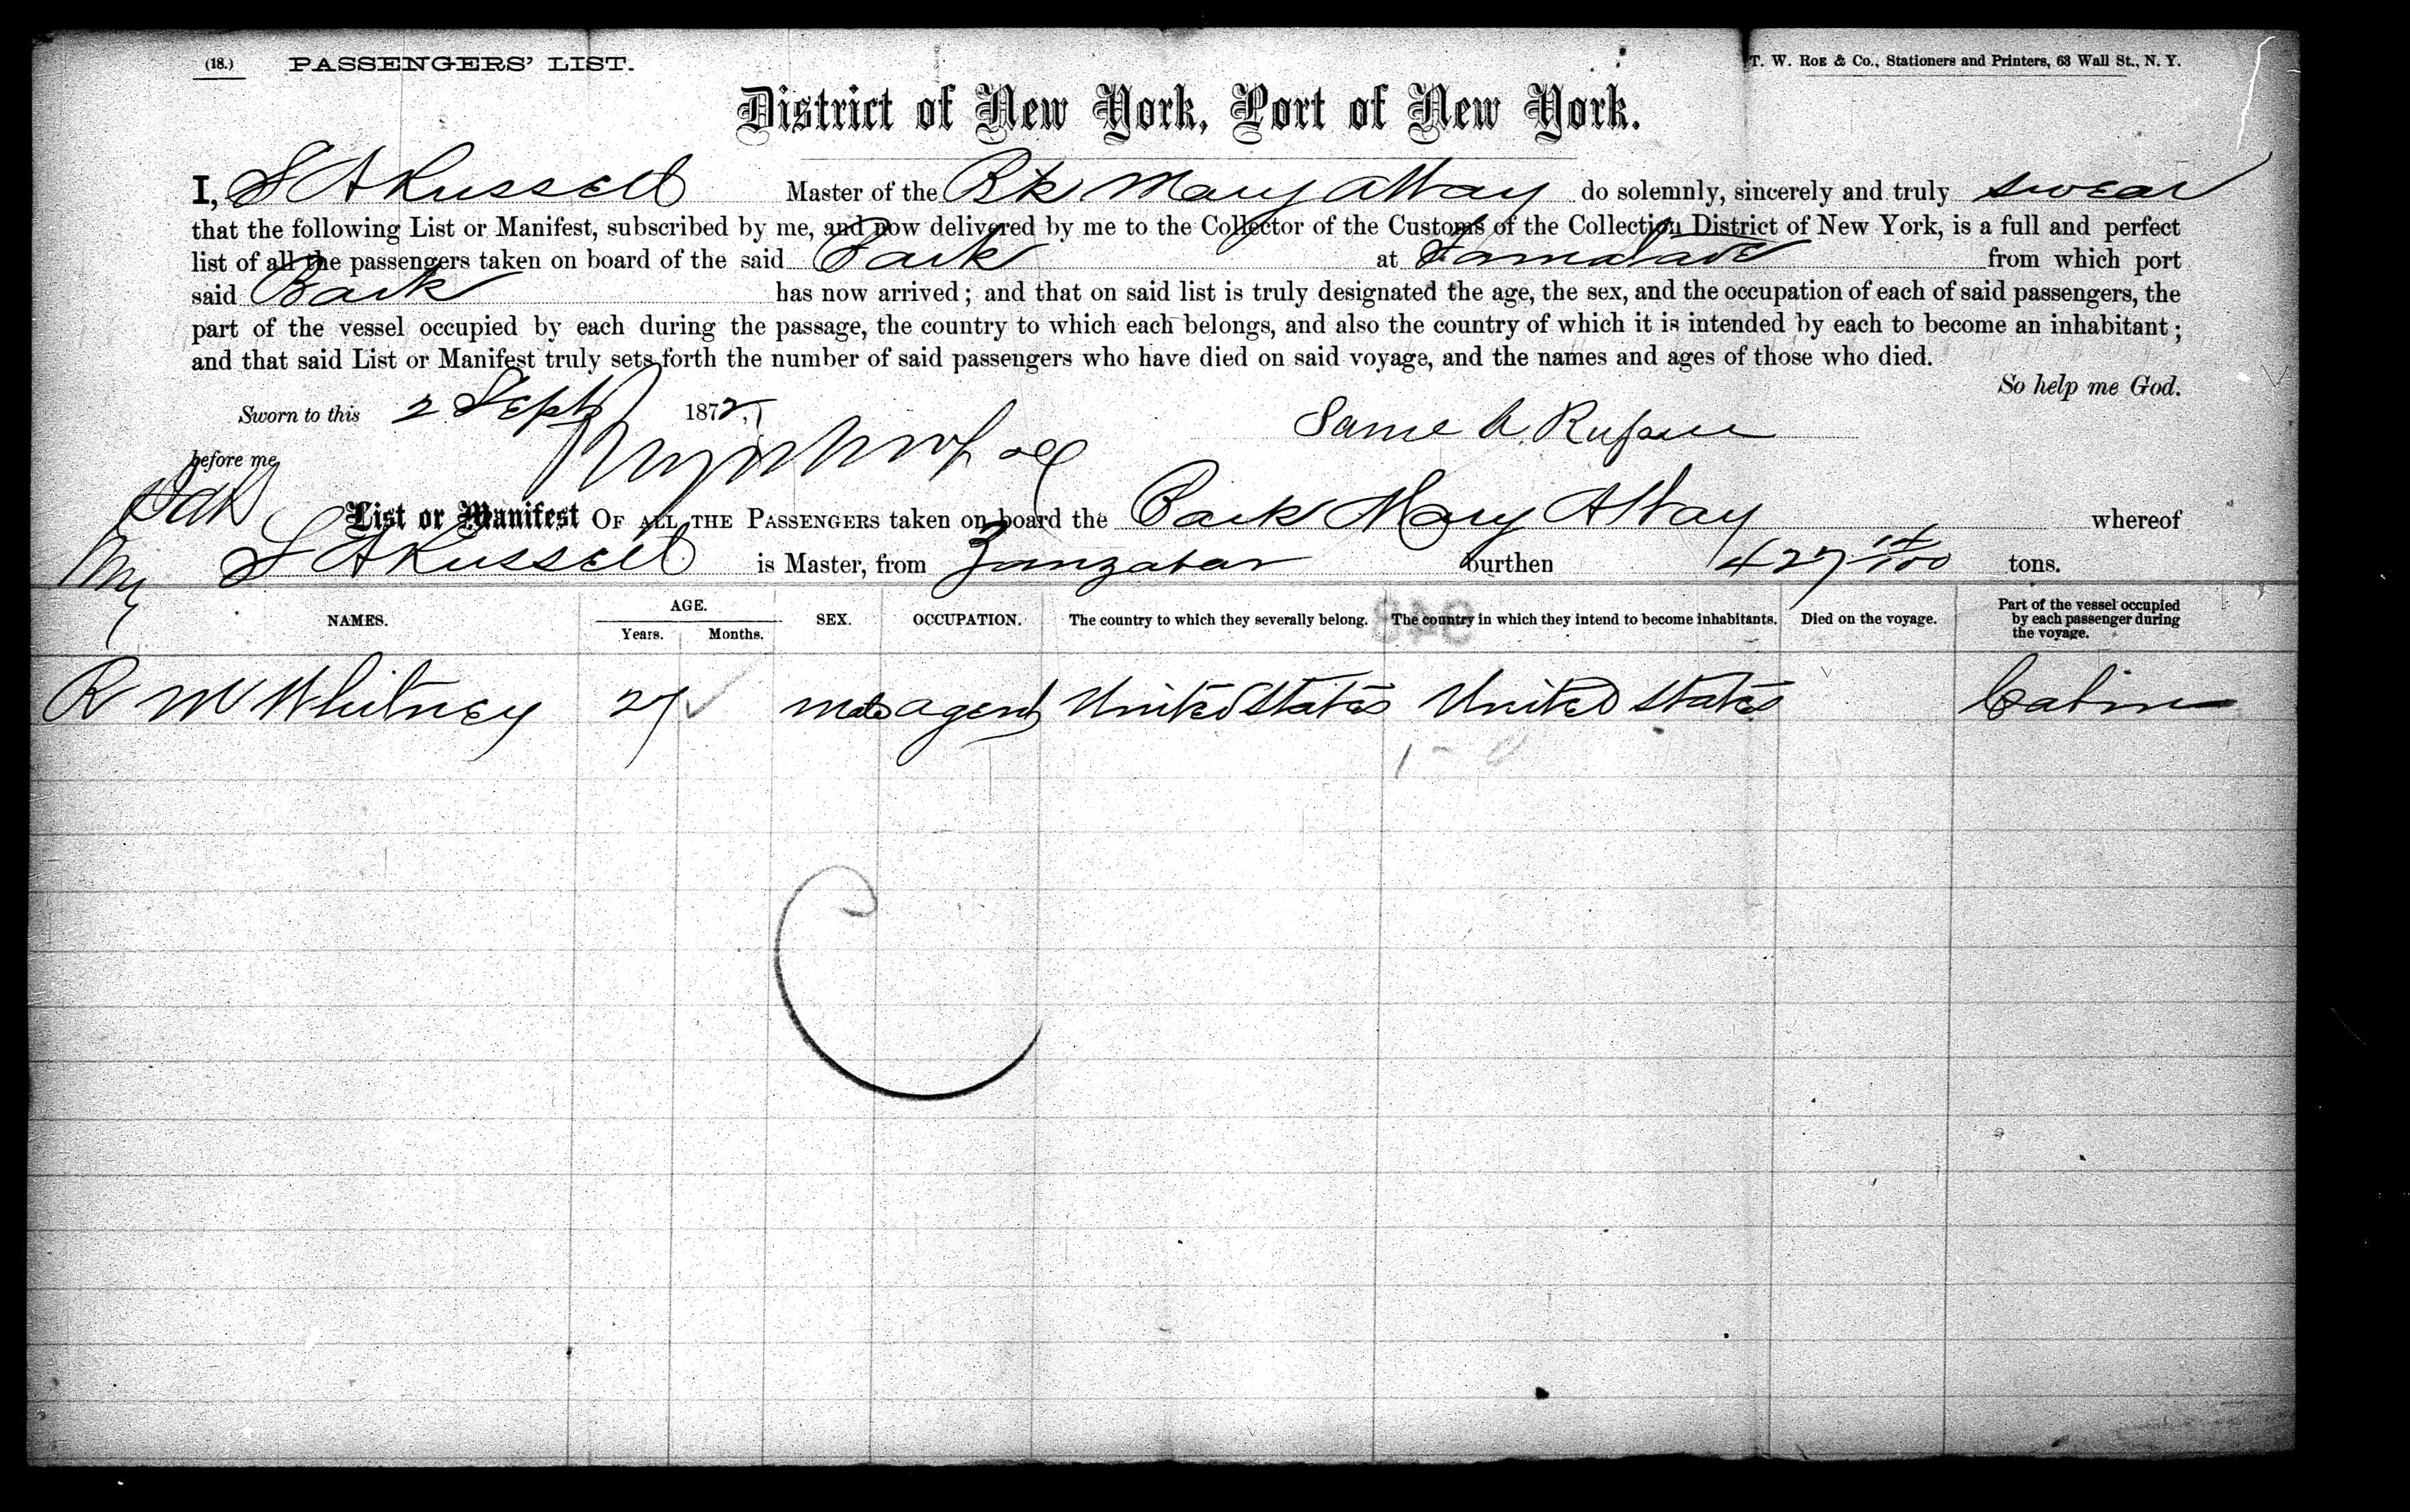 (18.) PASSENGERS' LIST. T. W. Roe & Co., Stationers and Printers, 63 Wall St., N. Y.
District of New York, Port of New York.
I, S A Russell Master of the Bk Mary Allay do solemnly, sincerely and truly swear
that the following List or Manifest, subscribed by me, and now delivered by me to the Collector of the Customs of the Collection District of New York, is a full and perfect
list of all the passengers taken on board of the said Bark at from which port
said Bark has now arrived; and that on said list is truly designated the age, the sex, and the occupation of each of said passengers, the
part of the vessel occupied by each during the passage, the country to which each belongs, and also the country of which it is intended by each to become an inhabitant;
and that said List or Manifest truly sets forth the number of said passengers who have died on said voyage, and the names and ages of those who died.
So help me God.
Sworn to this 2 Sept 1872,
before me
List or Manifest OF ALL THE PASSENGERS taken on board the Bark Mary Allay whereof
S A Russell is Master, from Zanzabar burthen 427 14/100 tons.
NAMES. AGE. Years. Months. SEX. OCCUPATION. The country to which they severally belong. The country in which they intend to become inhabitants. Died on the voyage. Part of the vessel occupied by each passenger during the voyage.
R M Whitney 27 Male agent United States United States Cabin